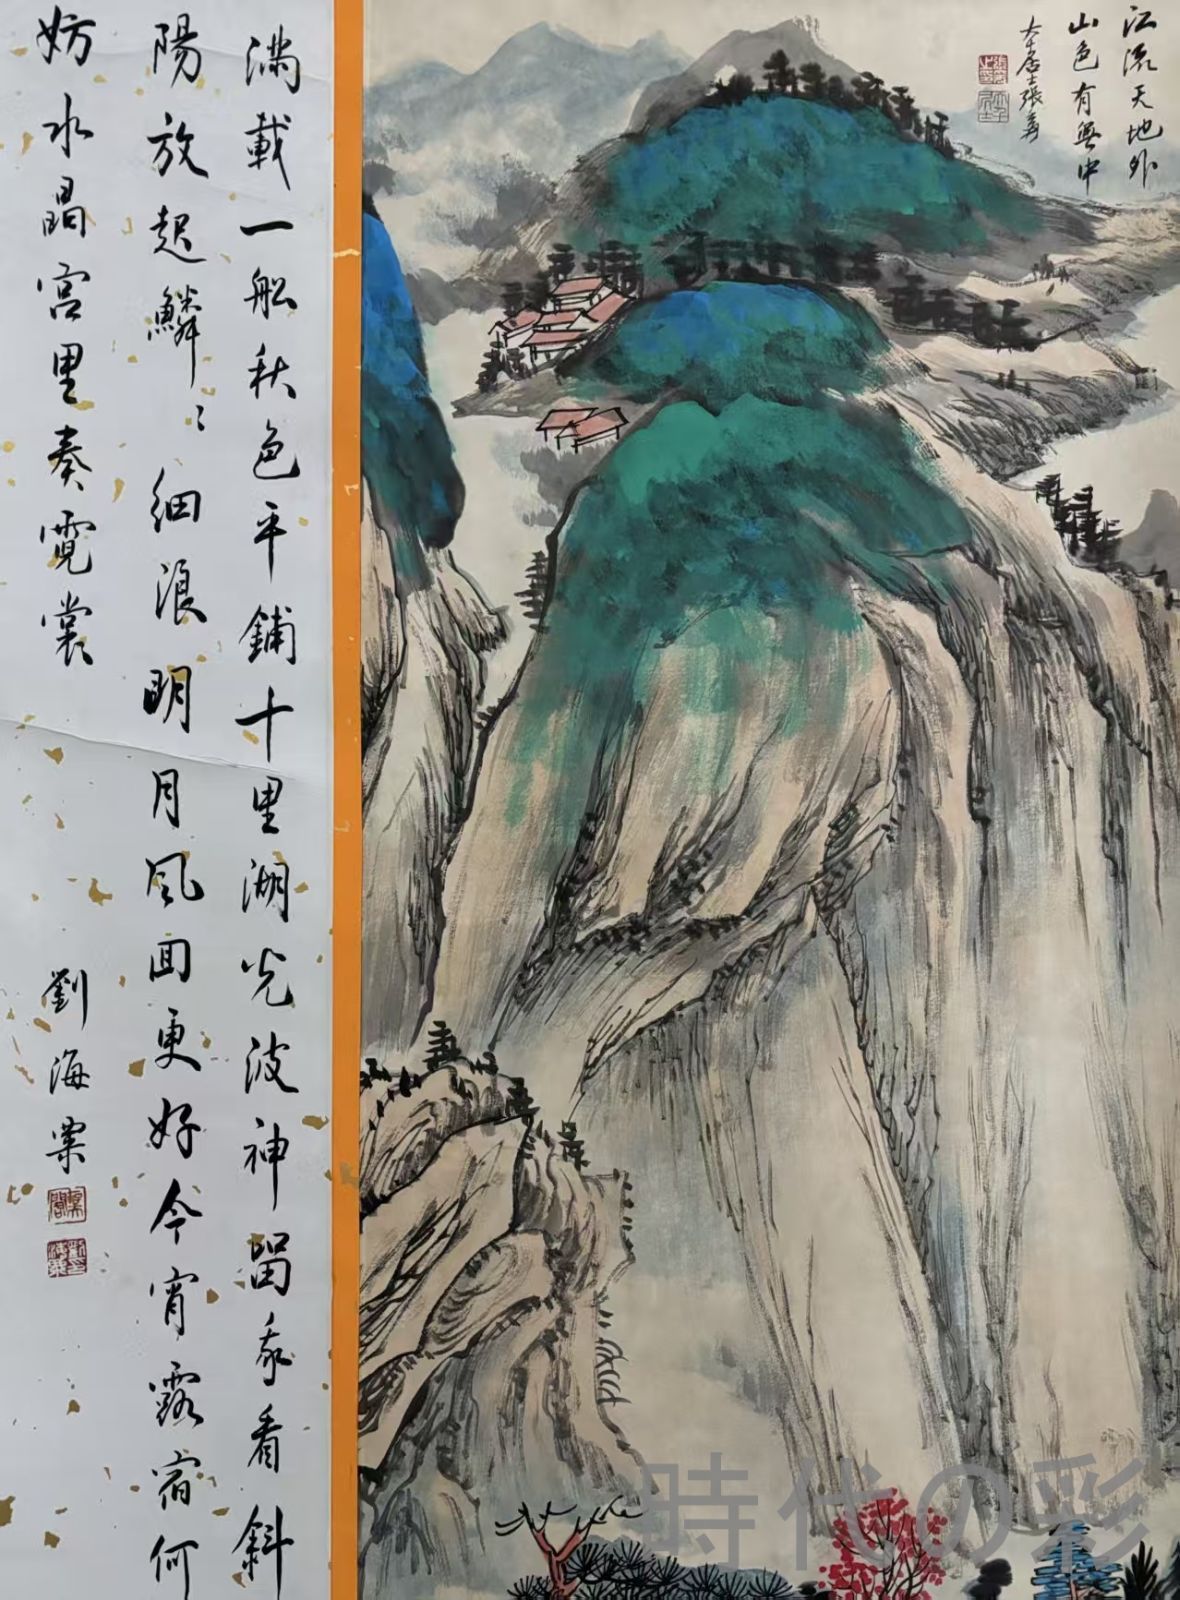 江流天地外
山色有無中
大千居士張爰
滿載一船秋色平鋪十里湖光波神留我看斜
陽放起鱗〻細浪明月風回更好今宵露宿何
妨水晶宮里奏霓裳
劉海粟
時代の彩